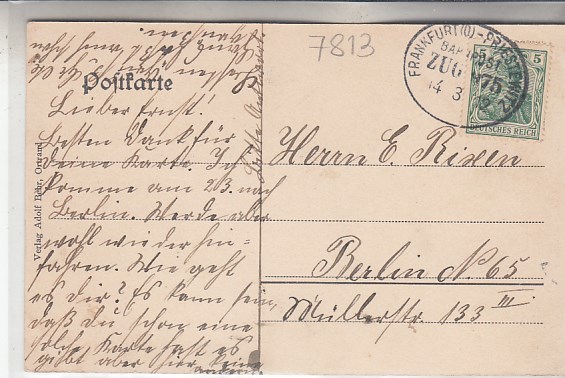 7813
Postkarte
FRANKFURT(O)-
BAHNPOST
ZUG 975
14 3 12
5 5
DEUTSCHES REICH
Verlag Adolf Rohr, Ortrand
Lieber Ernst!
Besten Dank für
Deine Karte. Ich
komme am 23. nach
Berlin. Werde aber
wohl wieder hin=
fahren. Wie geht
es dir? Es kann sein,
daß du schon eine
solche Karte hast es
gibt aber hier keine
andern
Herrn E. Rixen
Berlin N. 65
Müllerstr. 133 III